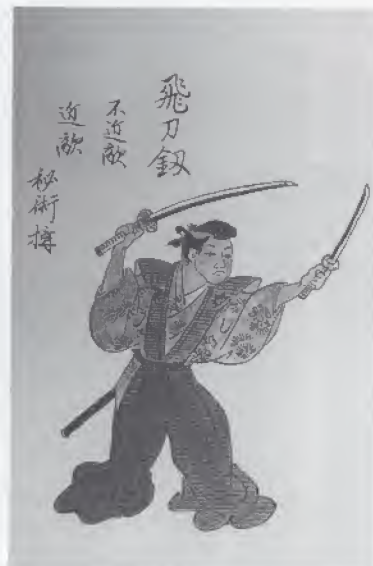 飛刀釼
不近敵
近敵
秘術